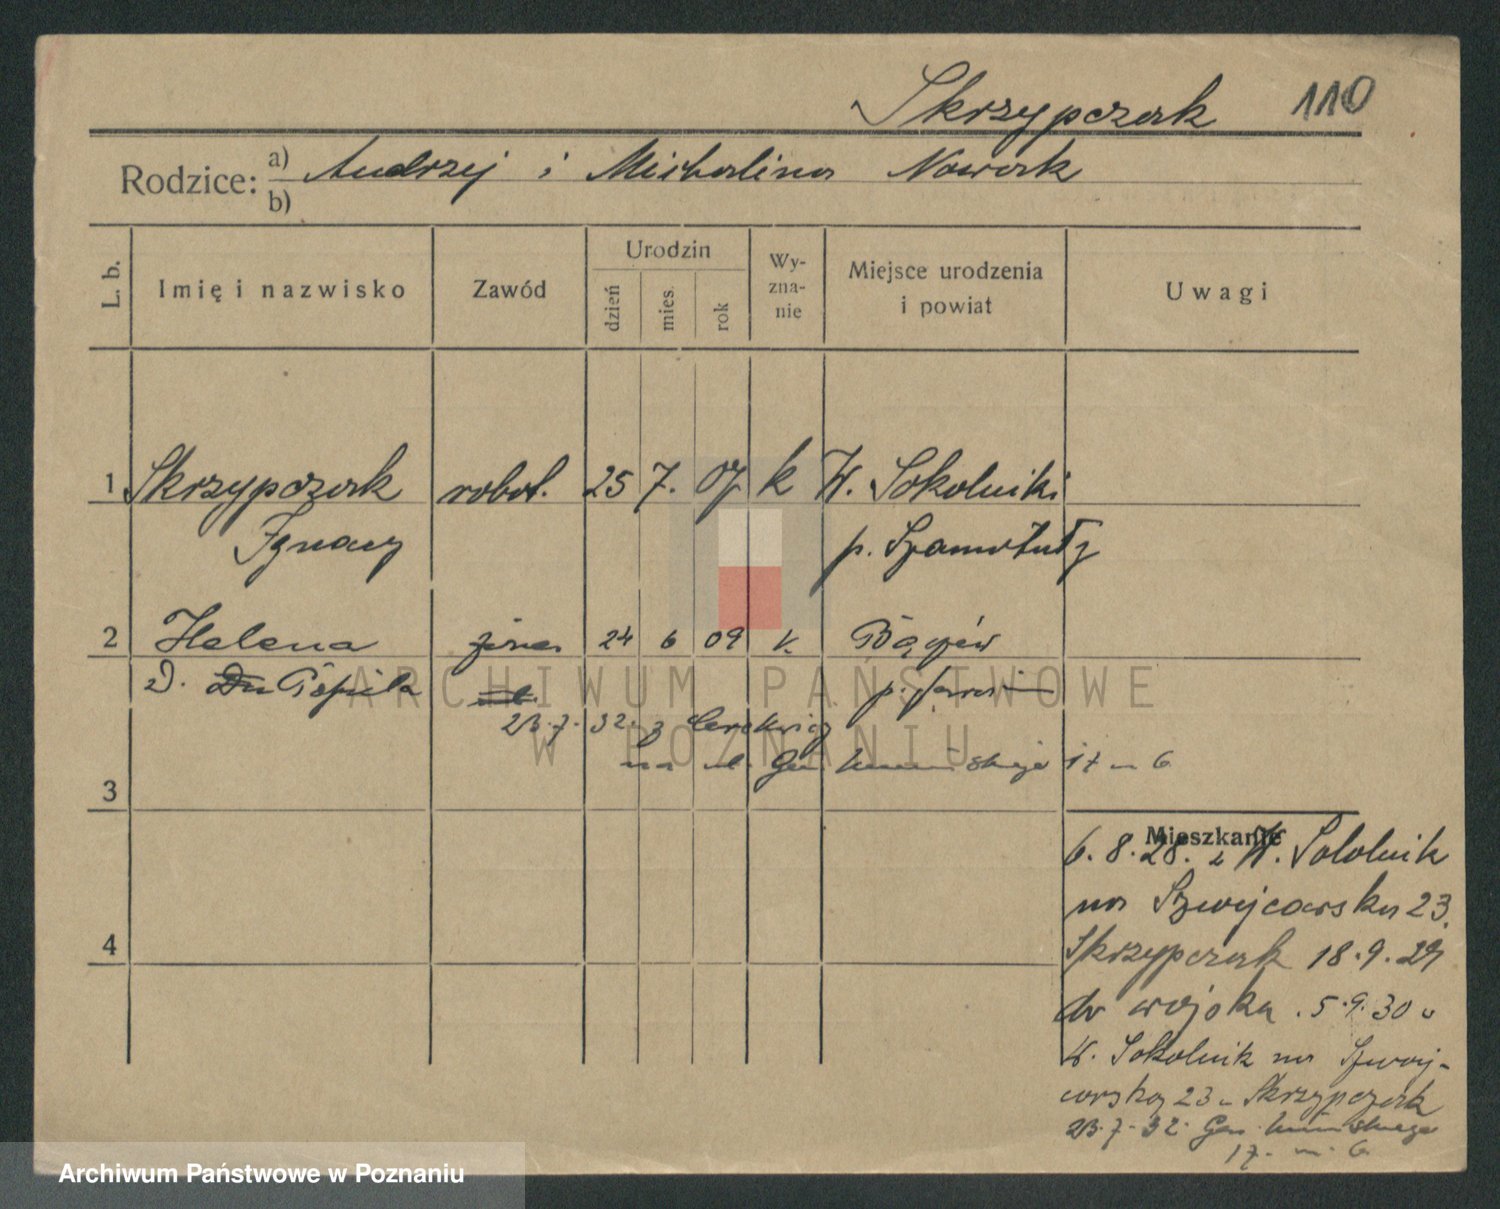 Skrzypczak 110
Rodzice: a) Andrzej i Michalina Nowak
b)
L. b. Imię i nazwisko Zawód Urodzin dzień mies. rok Wyznanie Miejsce urodzenia i powiat Uwagi
1 Skrzypczak robot. 25 7. 07 k W. Sokolniki
Ignacy p. Szamotuły
2 Helena żona 24 6 09 k.
d.
23.7.32. z Cerekwicy
na ul. Gen. 17 m 6
3
Mieszkanie
6.8.28. z W. Sokolnik
na Szwajcarska 23.
4
Skrzypczak 18.9.29
do wojska. 5.9.30
W. Sokolnik na Szwaj-
carską 23 u Skrzypczak
23.7.32. Gen.
17. m. 6
ARCHIWUM PAŃSTWOWE
W POZNANIU
Archiwum Państwowe w Poznaniu